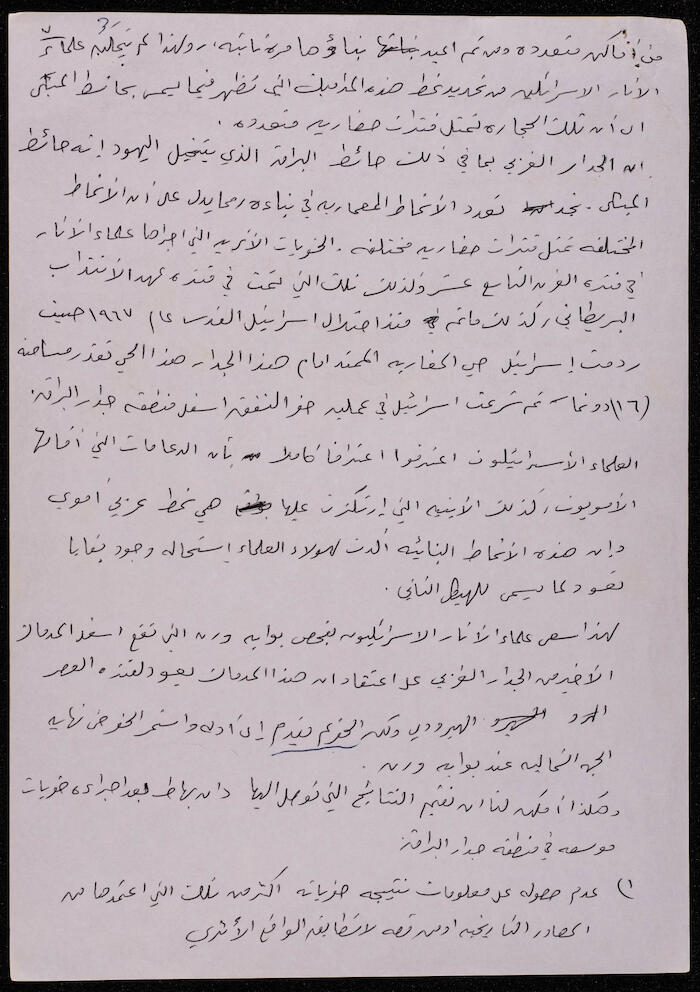 3
من أماكن متعدده ومن ثم اعيد بناؤها مرة ثانيه، ولهذا لم يتمكن علماء
الآثار الاسرائليين من تحديد نمط هذه المداميك التي تظهر فيما يسمى بحائط المبكى
الى أن تلك الحجاره تمثل فترات حضاريه متعدده .
ان الجدار الغربي بما في ذلك حائط البراق الذي يتخيل اليهود إنه حائط
المبكى . نجد تعدد الأنماط المعماريه في بناءه ومما يدل على أن الأنماط
المختلفه تمثل فترات حضاريه مختلفه . الحفريات الأثريه التي اجراها علماء الآثار
في فتره القرن التاسع عشر وكذلك تلك التي تمت في فتره عهد الأنتداب
البريطاني وكذلك ماتم منذ احتلال اسرائيل القدس عام ١٩٦٧ حيث
ردمت إسرائيل حي المغاربه الممتد امام هذا الجدار هذا الحي تقدر مساحته
(١٦) دونما ثم شرعت اسرائيل في عمليه حفر النفق اسفل منطقه جدار البراق.
العلماء الأسرائيليون اعترفوا اعترافا كاملا بأن الدعامات التي أقامها
الأمويون وكذلك الأبنيه التي إرتكزت عليها هي نمط عربي أموي
وان هذه الأنماط البنائيه أكدت لهولاء العلماء إستحاله وجود بقايا
تعود لما يسمى للهيكل الثاني .
لهذا سعى علماء الآثار الاسرائيليون بفحص بوابه ورن التي تقع اسفل المدماك
الأخير من الجدار الغربي على اعتقاد ان هذا المدماك يعود لفتره العصر
الهيرودي ولكن إلى أدله واستمر الخوض نهايه
الجهه الشماليه عند بوابه ورن .
وهكذا أمكن لنا ان نقيم النتائج التي توصل اليها دان بهاط بعد اجراءه حفريات
موسعه في منطقه جدار البراق:
١) عدم حصوله على معلومات نتيجه حفرياته اكثر من تلك التي اعتمدها من
المصادر التاريخيه او من قصه لاتطابق الواقع الأثري